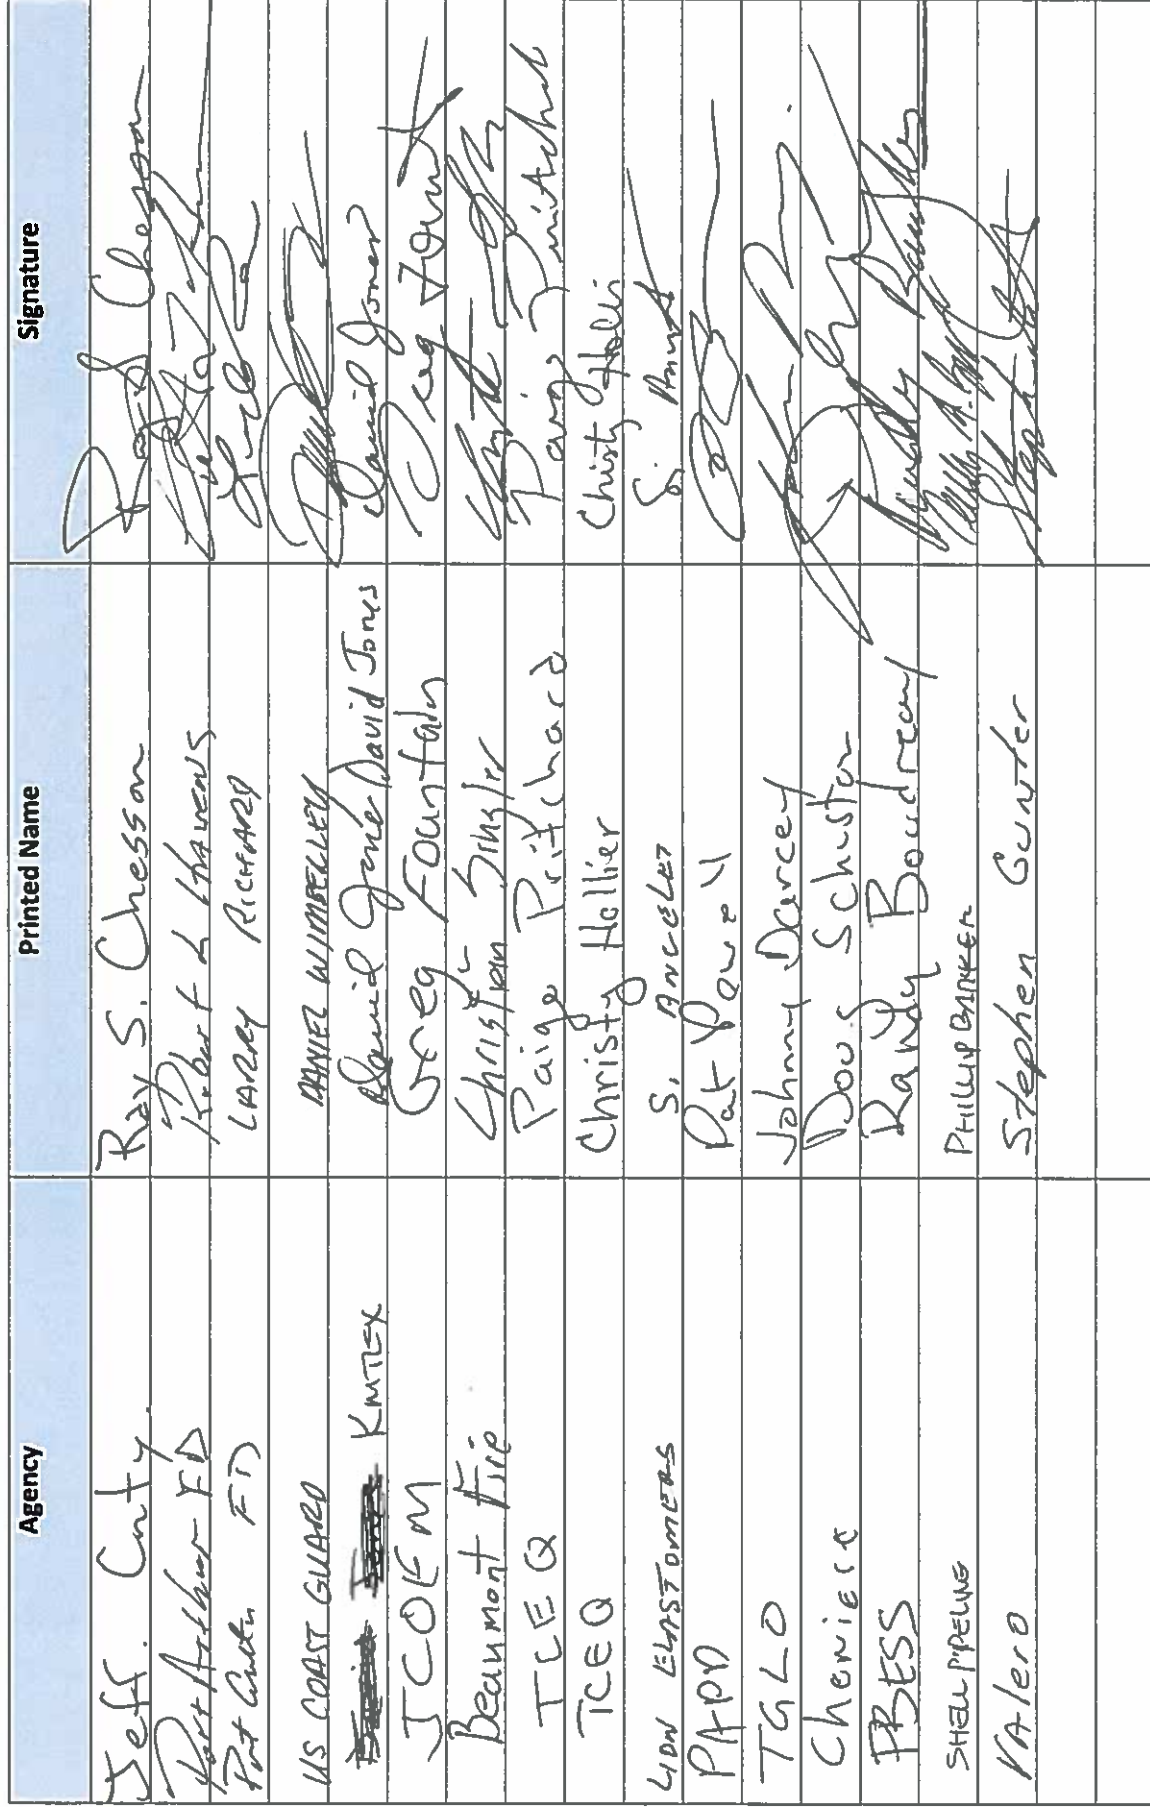 Agency Printed Name Signature
Jeff. Cnty. Ray S. Chesson Ray S Chesson
Port Arthur FD Robert L Havens
Port Arthur FD LARRY RICHARD
US COAST GUARD DANIEL WIMBERLEY
KMTEX David Jones David Jones David Jones
JCOEM Greg Fountain Greg Fount
Beaumont Fire Christian Singler
TCEQ Paige Pritchard Paige Pritchard
TCEQ Christy Hollier Christy Hollier
LION ELASTOMERS S. ANCELET S.
PAPD Pat Powell
TGLO Johnny Darcey
Cheniere Doug Schuster
PBESS Randy Boudreaux
SHELL PIPELINE PHILLIP BARKER
VAlero Stephen Gunter